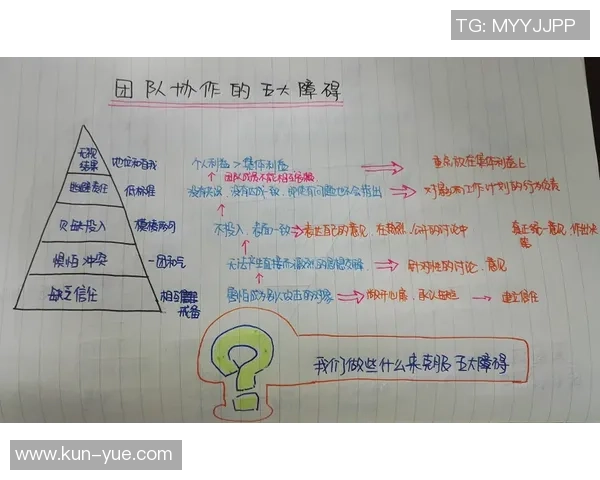 TG: MYYJJPP
团队协作的五大障碍
无视
结果
地位和自我
个人利益 > 集体利益
重点放在集体利益上
逃避责任
低标准
团队成员不能相互
对影响工作计划的行为负责
欠缺投入
模棱两可
不投入,表面一致
表达自己的意见,在热烈、公开的讨论中
真正统一意见,作出决策
惧怕冲突
一团和气
无法产生直接而激烈的思想交锋
针对性的讨论、意见
缺乏信任
相互戒备
害怕成为别人攻击的对象
敞开心扉,承认
建立信任
我们做些什么来克服五大障碍
www.kun-yue.com